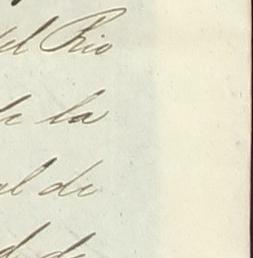 del Rio
de la
al de
d de